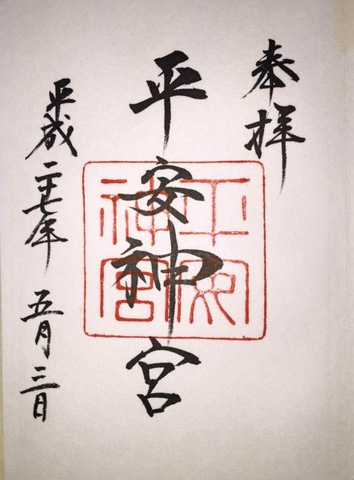 奉拝
平安神宮
平安神宮
平成二十七年 五月三日